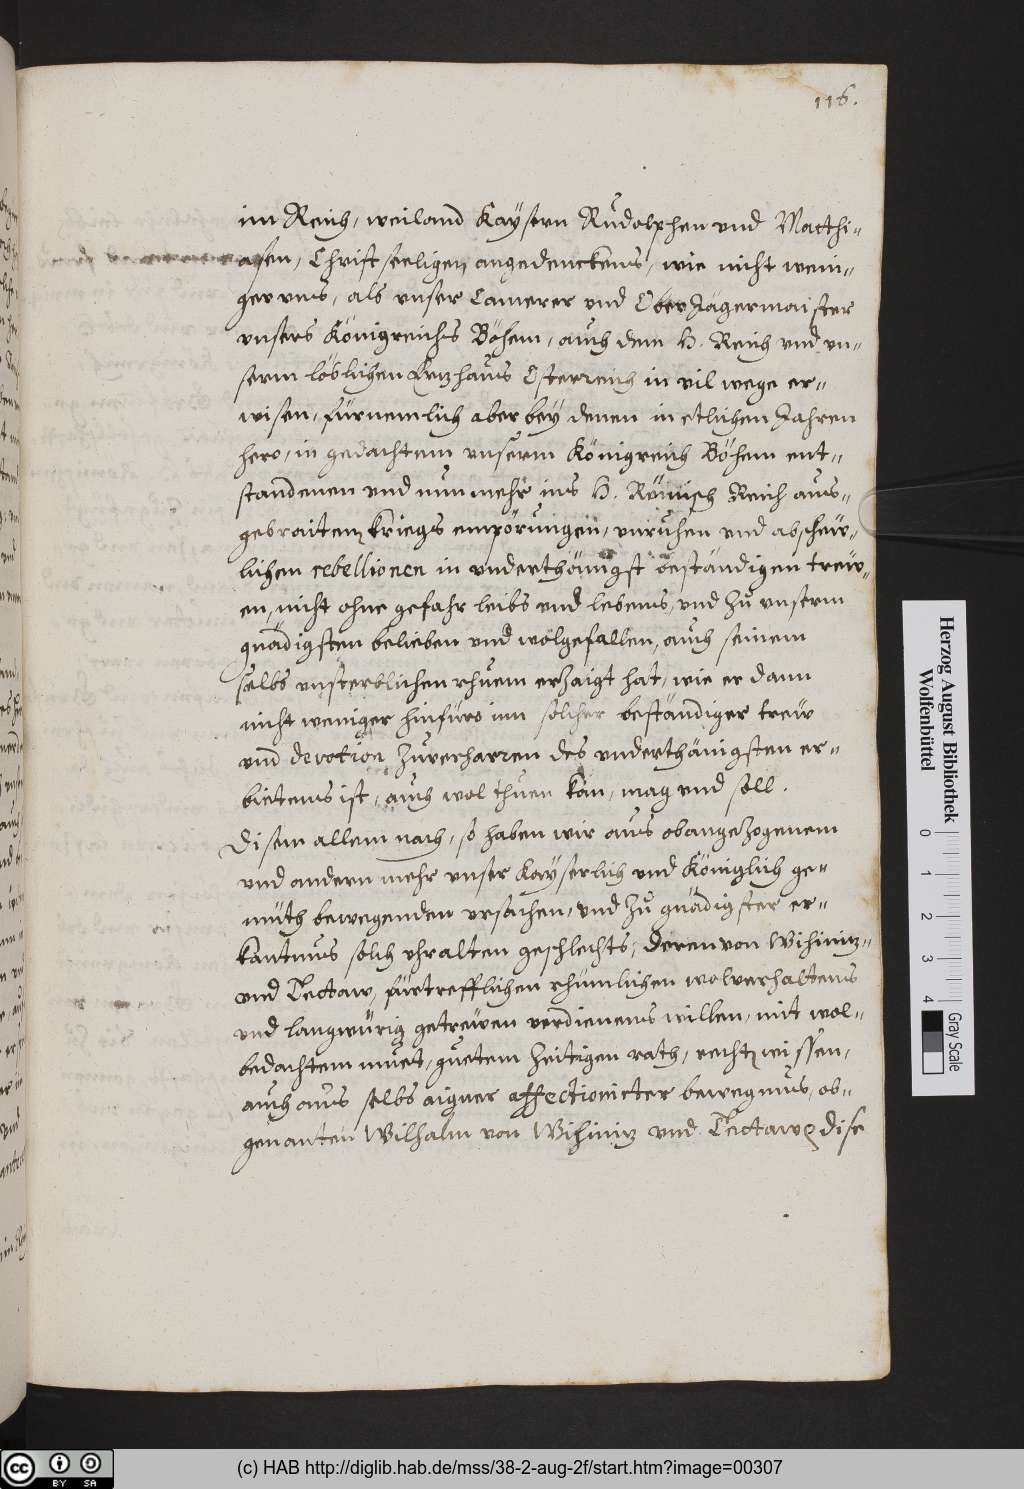 116.
im Reich, weiland Kaysern Rudolphen und Matthi-
asen, Christseeligen angedenckens, wie nicht weni-
ger uns, als unser Camerer und Ober Jägermaister
unsers Königreichs Böhem, auch dem H. Reich und un-
serm löblichen Ertzhaus Österreich in vil wege er-
wisen, fürnemlich aber bey denen in etlichen Jahren
hero, in gedachtem unserm Königreich Böhem ent-
standenen und nunmehr ins H. Römisch Reich aus-
gebraiten kriegs empörungen, unruhen und abscheü-
lichen rebellionen in underthönigst beständigen treü-
en, nicht ohne gefahr leibs und lebens, und zu unserm
gnädigsten belieben und wolgefallen, auch seinem
selbs unsterblichen rhuem erzaigt hat, wie er dann
nicht weniger hinfüro inn solcher beständiger treü
und devotion zuverharren des underthänigsten er-
bietens ist, auch wol thuen kan, mag und soll.
Disem allem nach, so haben wir aus obangezogenem
und andern mehr unser Kayserlich und Königlich ge-
müth bewegenden ursachen, und zu gnädigster er-
kantnus solch uhralten geschlechts, deren von Wchinitz
und Tettaw, fürtrefflichen rhümlichen wolverhaltens
und langwürig getrewen verdienens willen, mit wol-
bedachtem muet, guetem zeitigen rath, recht wissen,
auch aus selbs aigner affectionirter bewegnus, ob-
genanten Wilhalm von Wchinitz und Tettaw dise
Herzog August Bibliothek
Wolfenbüttel
0 1 2 3 4
Gray Scale
cc BY SA
(c) HAB http://diglib.hab.de/mss/38-2-aug-2f/start.htm?image=00307